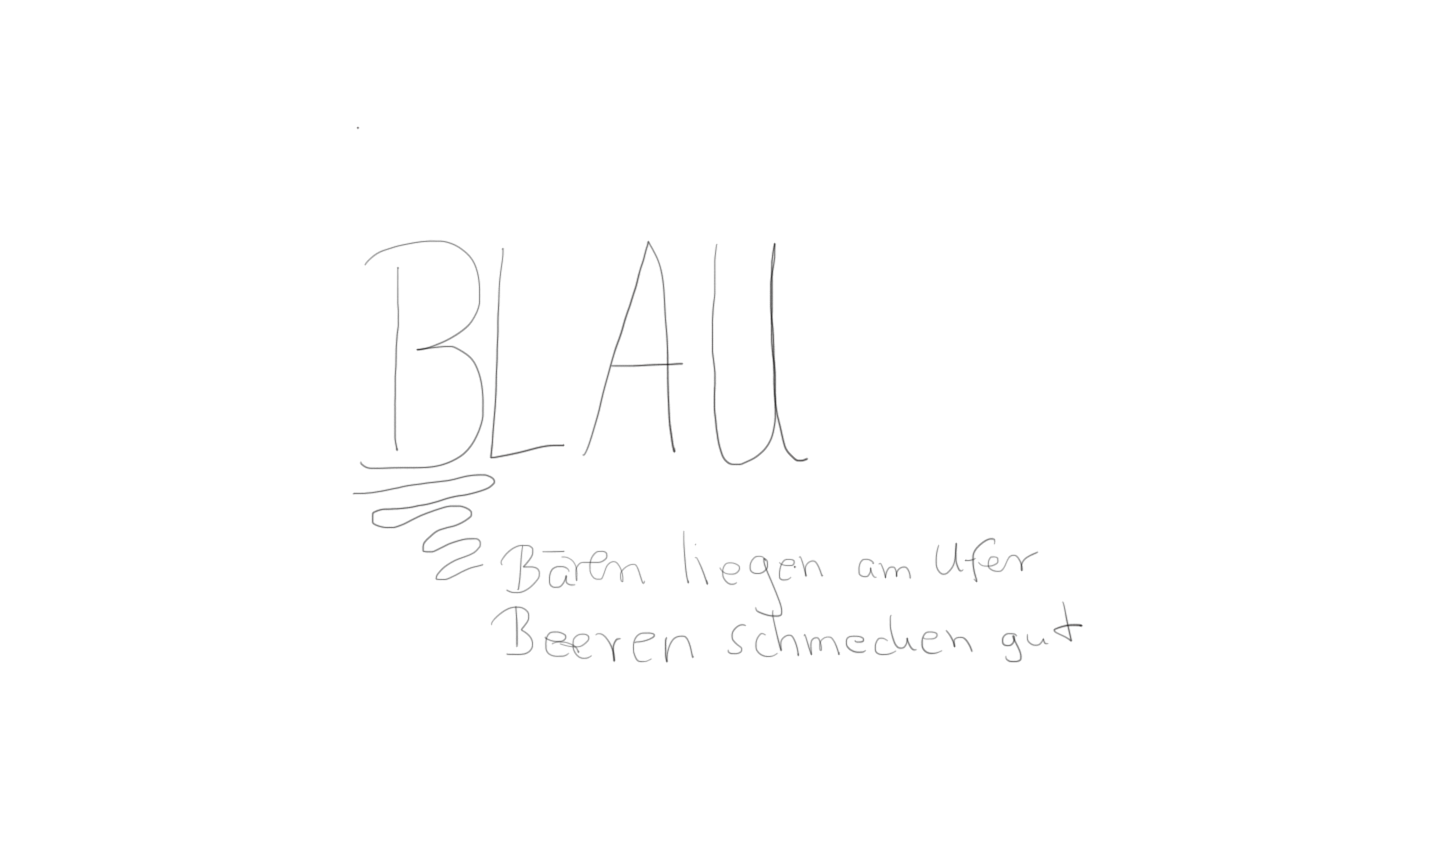 BLAU
Bären liegen am Ufer
Beeren schmecken gut